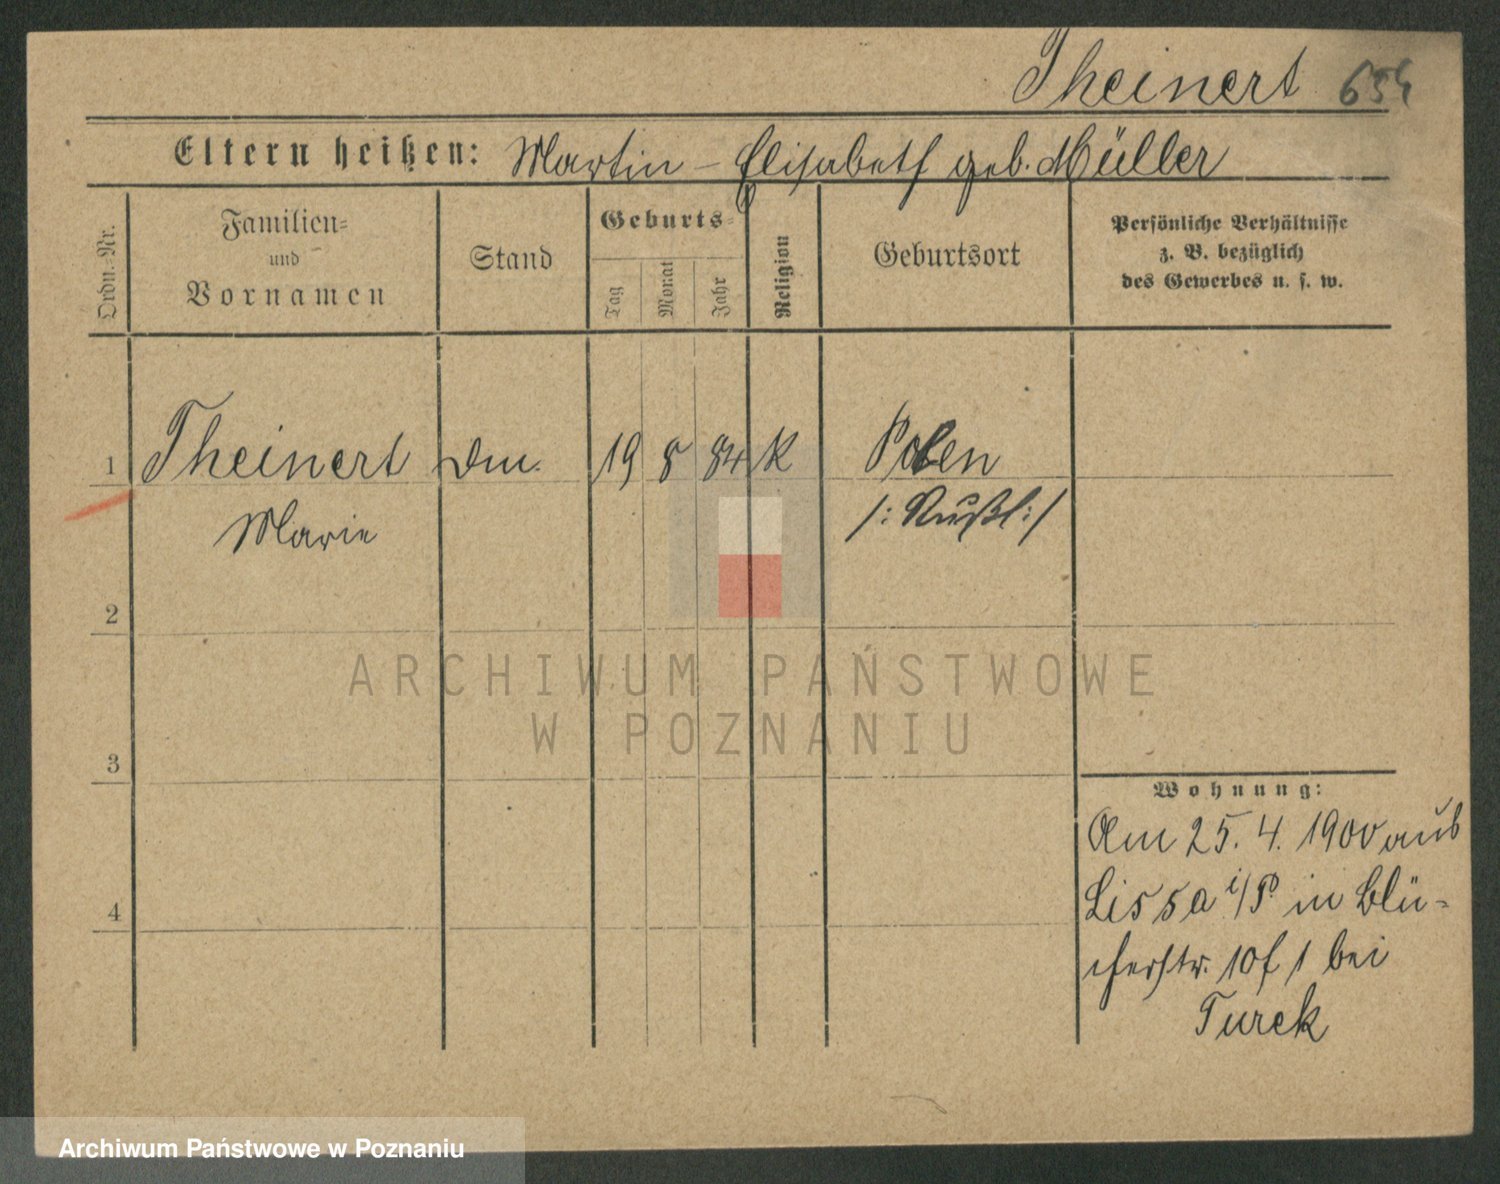 Theinert 654
Eltern heißen: Martin - Elisabeth geb. Müller
Ordn.-Nr.
Familien-
und
Vornamen
Stand
Geburts-
Tag
Monat
Jahr
Religion
Geburtsort
Persönliche Verhältnisse
z. B. bezüglich
des Gewerbes u. s. w.
1 Theinert 19 8 84 K Polen
Marie /: Rußl :/
2
3
4
Wohnung:
Am 25. 4. 1900 aus
Lissa i/P in Blü-
cherstr. 10 f 1 bei
Turek
ARCHIWUM PAŃSTWOWE
W POZNANIU
Archiwum Państwowe w Poznaniu